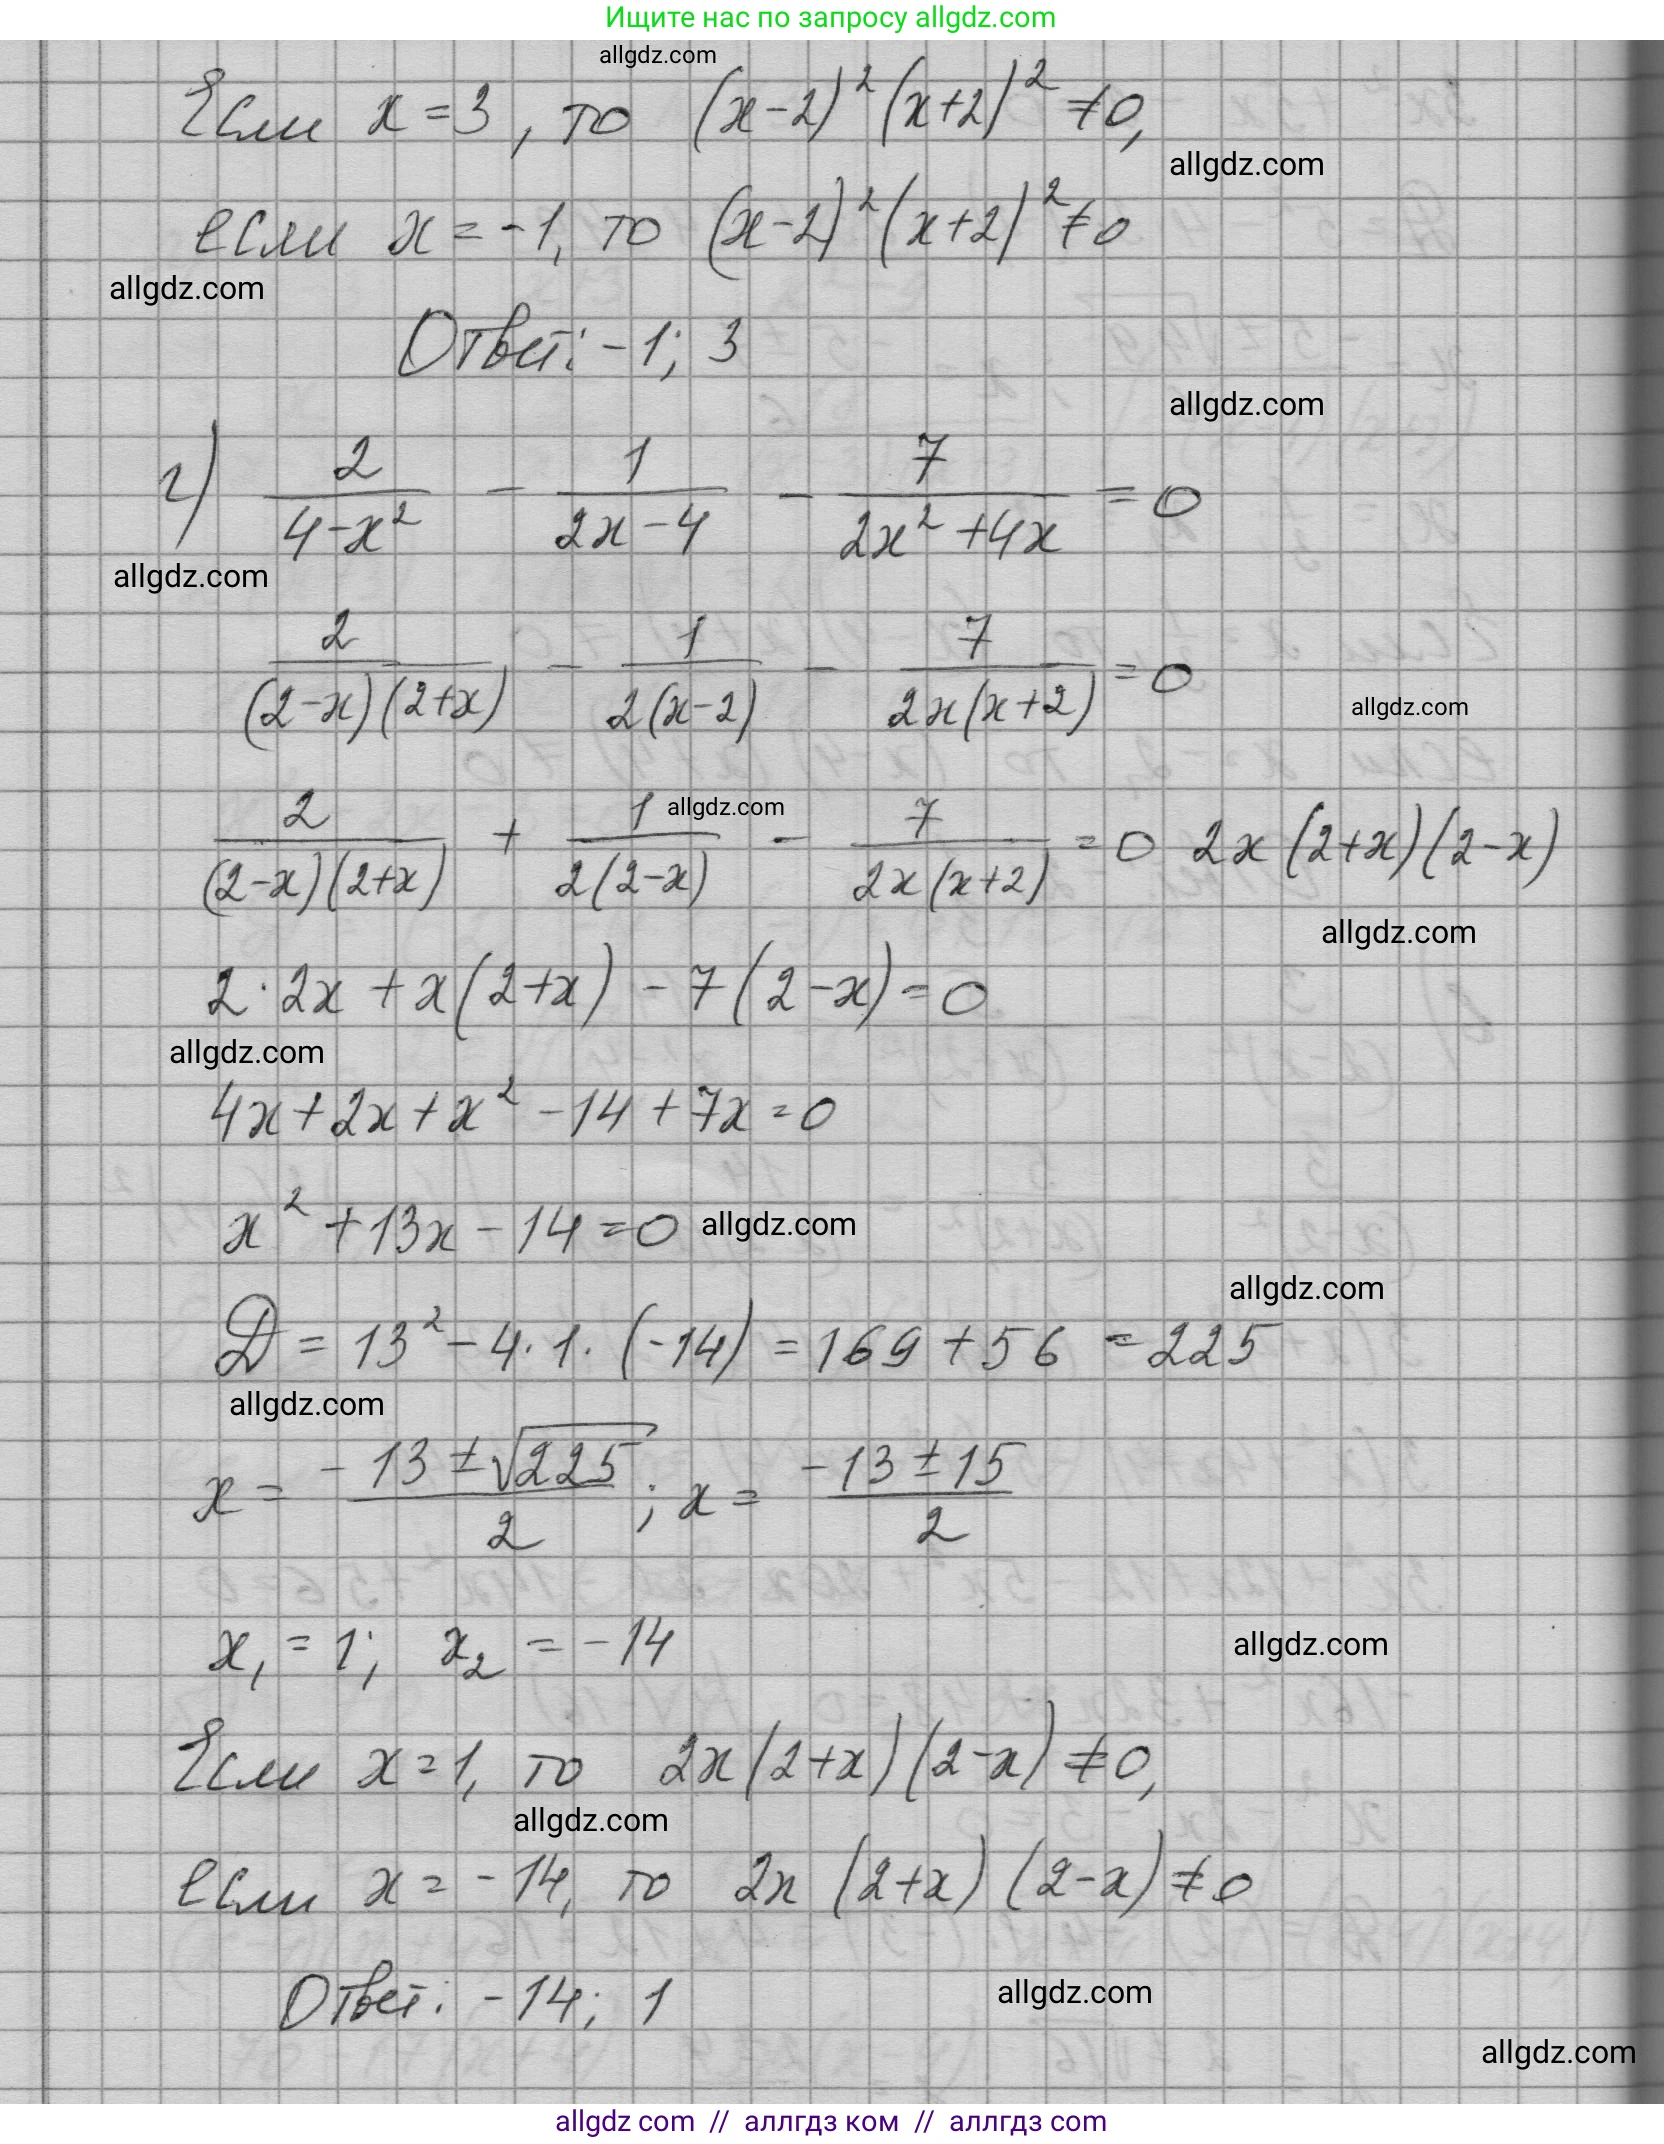 Ищите нас по запросу allgdz.com
allgdz.com
Если x = 3, то (x-2)² (x+2)² ≠ 0,
allgdz.com
если x = -1, то (x-2)² (x+2)² ≠ 0
allgdz.com
Ответ: -1; 3
allgdz.com
г) 2/(4-x²) - 1/(2x-4) - 7/(2x²+4x) = 0
allgdz.com
2/((2-x)(2+x)) - 1/(2(x-2)) - 7/(2x(x+2)) = 0
allgdz.com
allgdz.com
2/((2-x)(2+x)) + 1/(2(2-x)) - 7/(2x(x+2)) = 0 2x(2+x)(2-x)
allgdz.com
2·2x + x(2+x) - 7(2-x) = 0
allgdz.com
4x + 2x + x² - 14 + 7x = 0
x² + 13x - 14 = 0 allgdz.com
allgdz.com
D = 13² - 4·1·(-14) = 169 + 56 = 225
allgdz.com
x = (-13 ± √225)/2; x = (-13 ± 15)/2
x₁ = 1; x₂ = -14
allgdz.com
Если x = 1, то 2x(2+x)(2-x) ≠ 0,
allgdz.com
если x = -14, то 2x (2+x) (2-x) ≠ 0
Ответ: -14; 1
allgdz.com
allgdz.com
allgdz com // аллгдз ком // аллгдз com